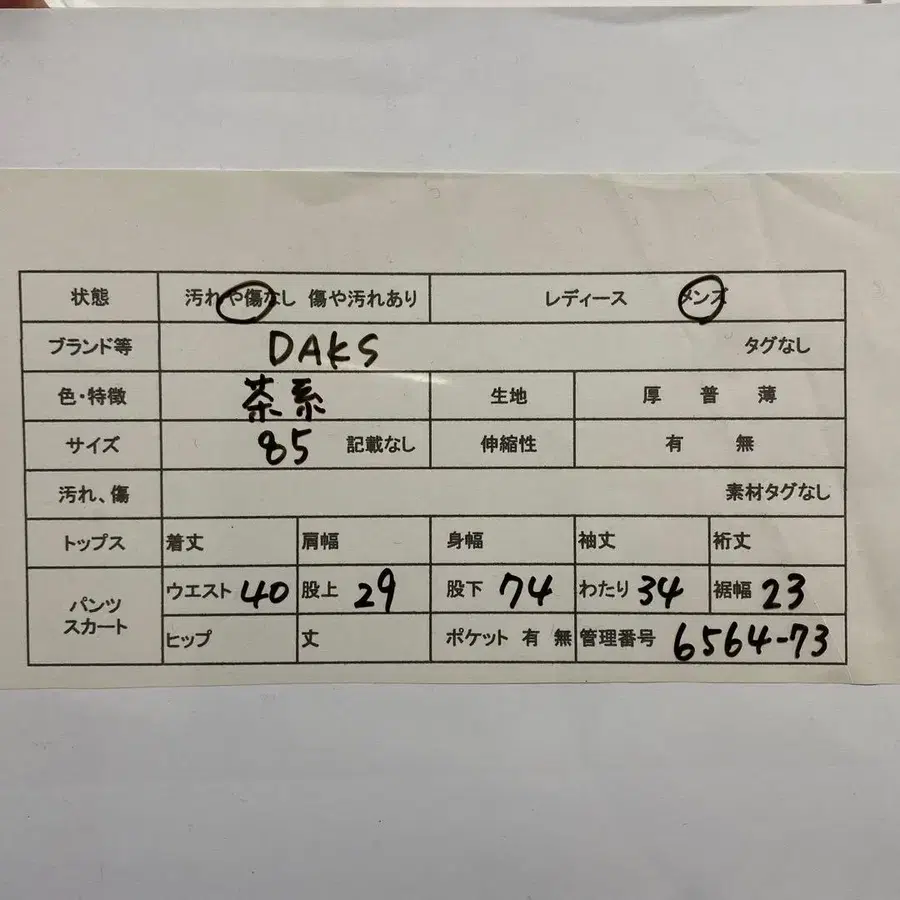 状態 汚れや傷なし 傷や汚れあり レディース メンズ
ブランド等 DAKS タグなし
色・特徴 茶系 生地 厚 普 薄
サイズ 85 記載なし 伸縮性 有 無
汚れ、傷 素材タグなし
トップス 着丈 肩幅 身幅 袖丈 裄丈
パンツ スカート ウエスト 40 股上 29 股下 74 わたり 34 裾幅 23
ヒップ 丈 ポケット 有 無 管理番号 6564-73